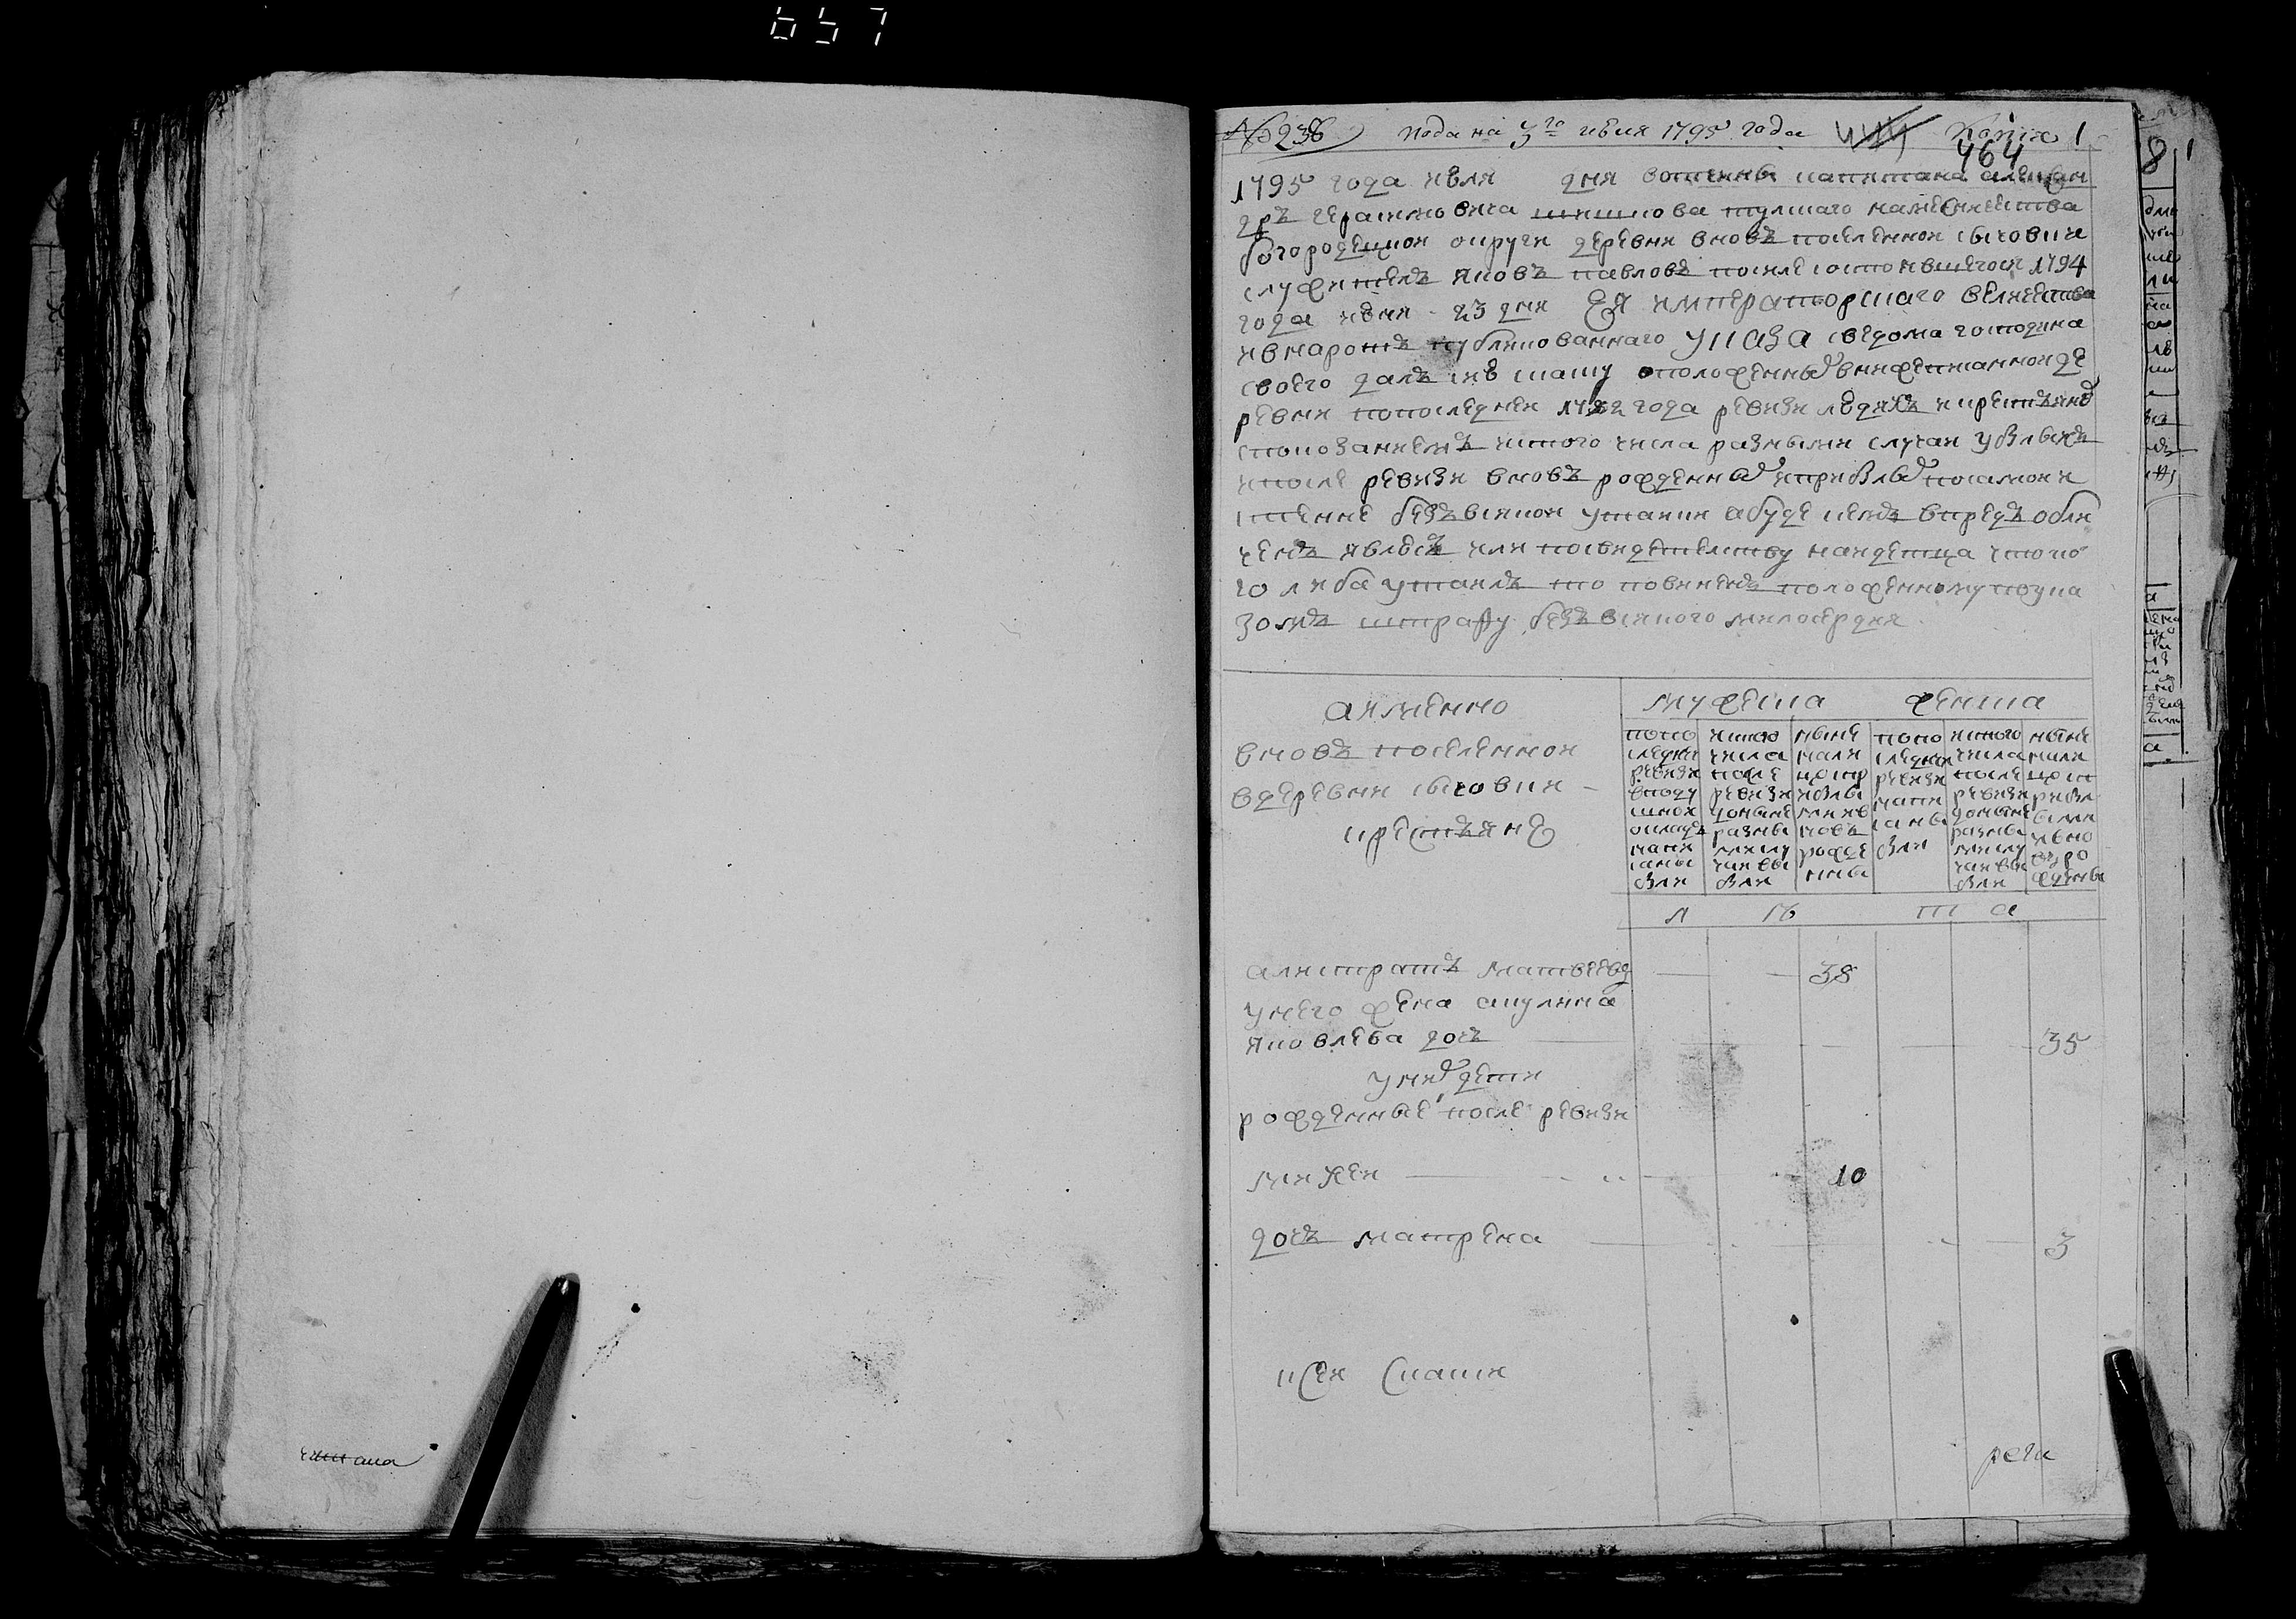 657
№ 236 Пода на 3го июня 1795 года Копия 1
464
1795 года июля дня вотчины капитана алексан
дръ герасимовича шишкова тулскаго намесничества
богородецкой округи деревни вновь поселенной сычовки
служитель яковъ павловъ посиле состоявшегося 1794
года июня 23 дня Ея императорскаго величества
ивнародъ публикованнаго указа сведома господина
своего далъ сию скаску оположенныхъ внижеписанной де
ревни попоследней 1782 года ревизи людяхъ икрестьянехъ
споказаниемъ истого числа разными случаи убылыхъ
ипосле ревизи вновь рожденныхъ иприбылыхъ посамой и
стенне безъ всякой утайки абуде кемъ впредь обли
ченъ явлюсь или посвидетелству найдетца чтоко
го либа утаилъ то повиненъ положенному поука
зомъ штрафу безъ всякого милосердия
аимянно
вновь поселенной
вдеревни сычовки
крестьяне
мужеска женска
попо следней ревизи вподу шной окладъ напи саны были
истого числа после ревизи доныне разны ми слу чаи вы были
ныне нали цо ипр ибылы ми ив новь рожде нны
попо следней ревизи напи саны были
истого числа после ревизи доныне разны ми слу чаи вы были
ныне нали цо ип рибы лыми ивно вь ро жденны
л ѣ т а
алистратъ матвеевъ 38
унего жена акулина
яковлева дочь 35
унихъ дети
рожденные после ревизи
михей 10
дочь матрена 3
ксей скаски
реги
читана